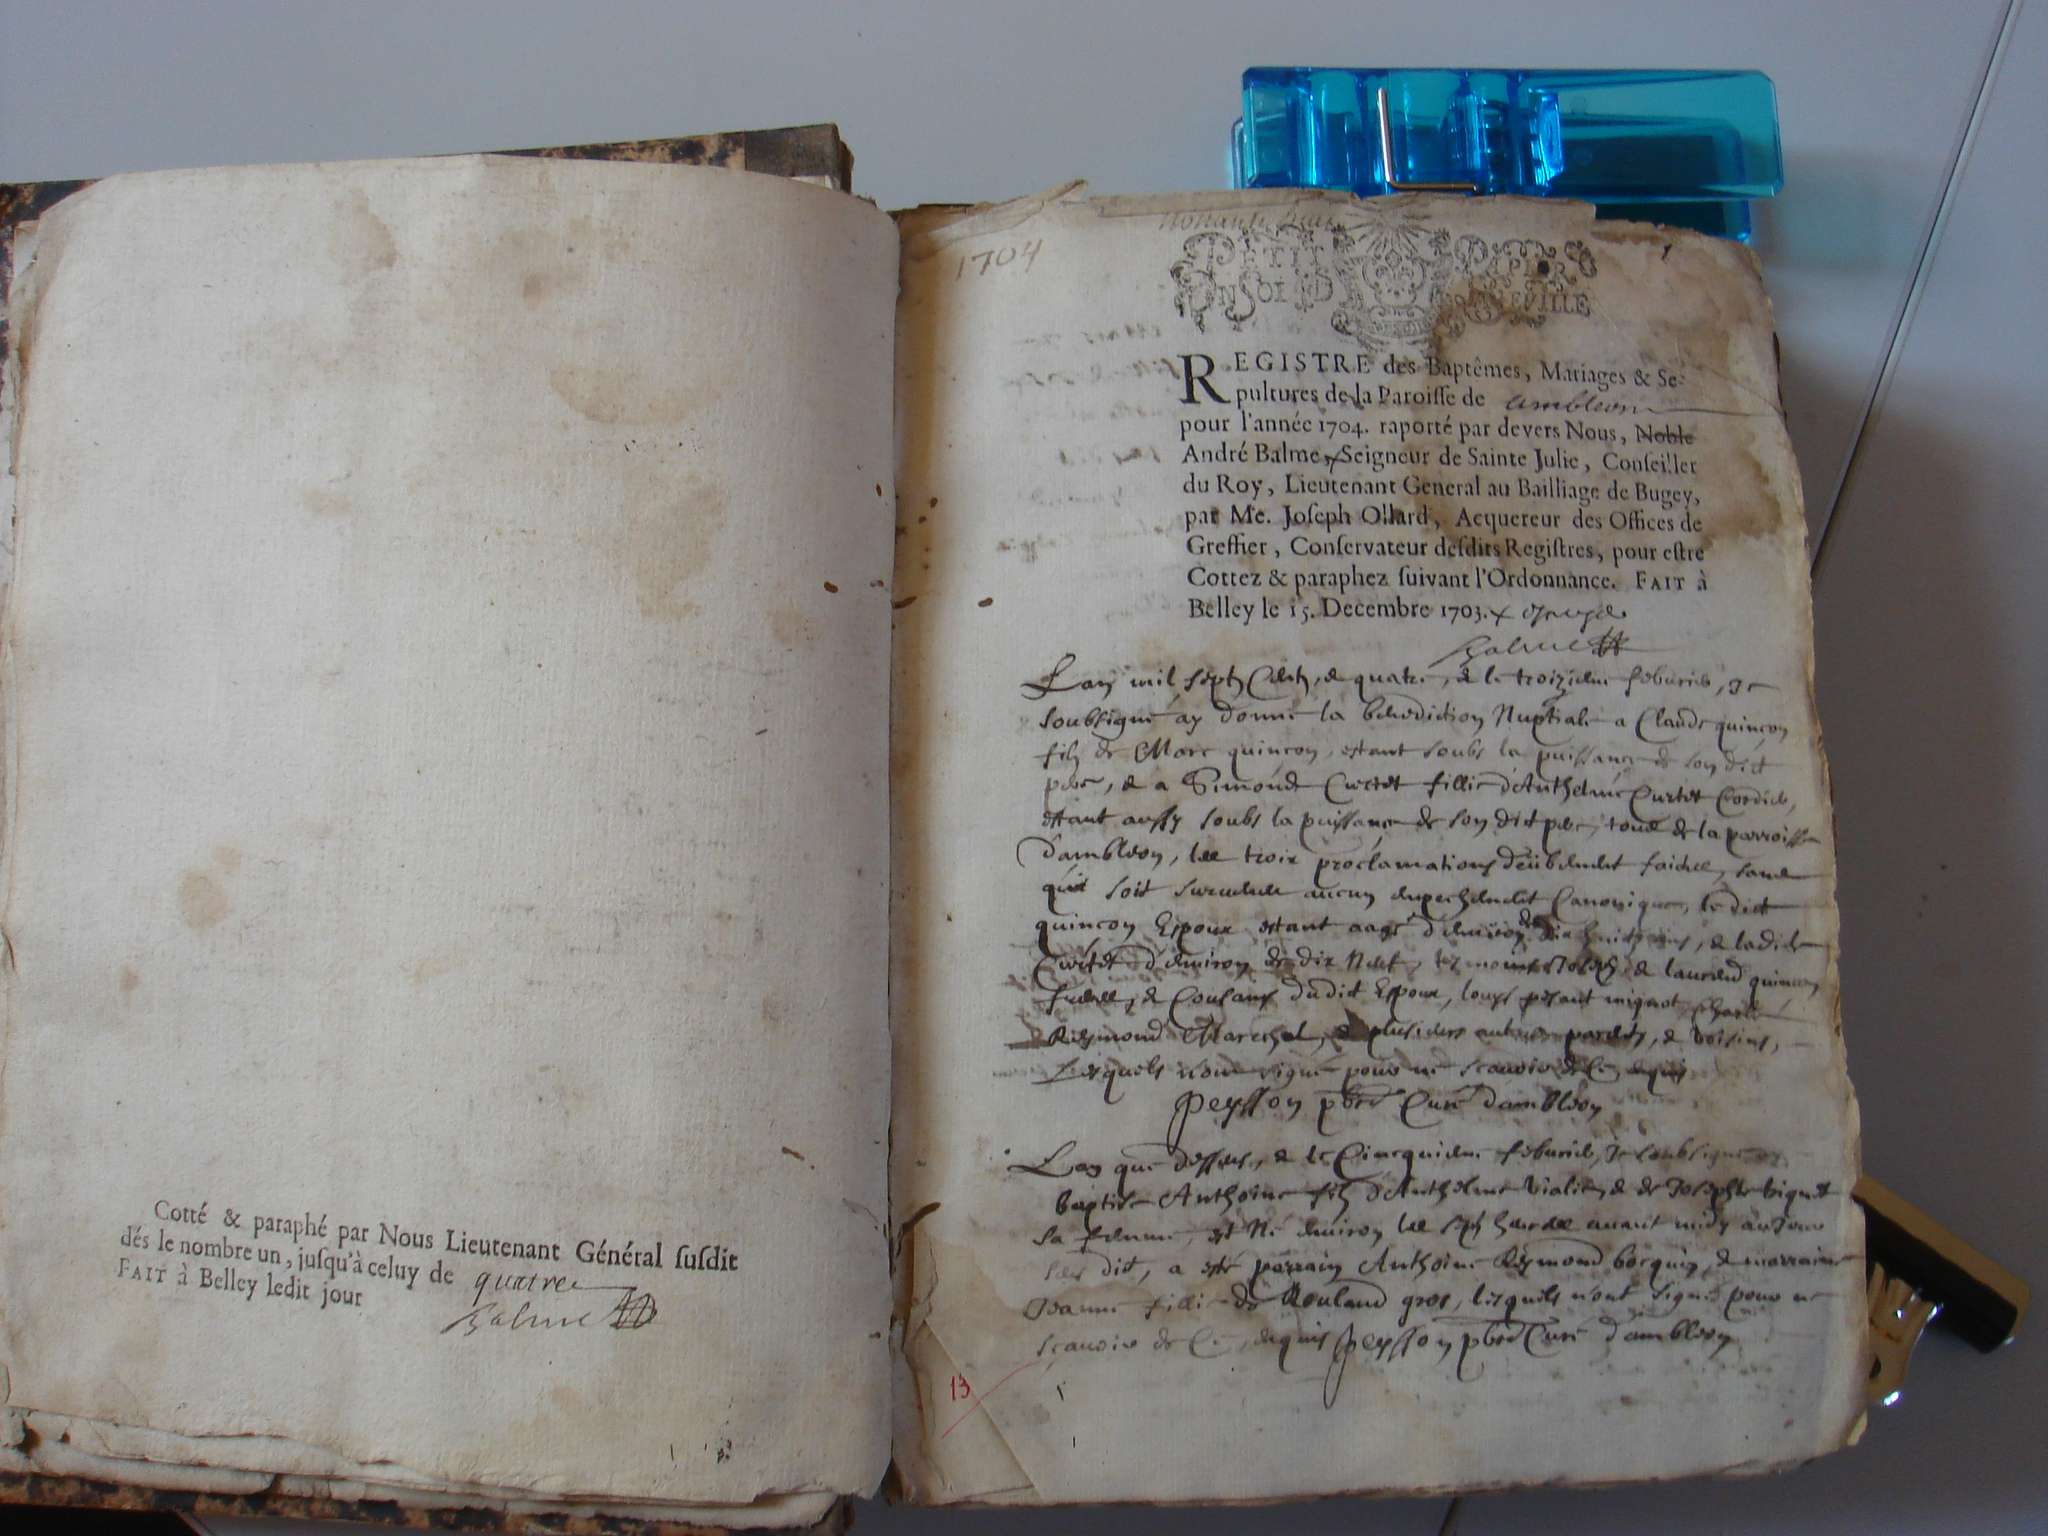 Cotté & paraphé par Nous Lieutenant Général susdit
dés le nombre un, jusqu'à celuy de quatre
FAIT à Belley ledit jour
Balme
1704
PETIT PAPIER
UN SOL
1
REGISTRE des Baptêmes, Mariages & Se-
pultures de la Paroisse de ambleon
pour l'année 1704. raporté par devers Nous, Noble
André Balme, Seigneur de Sainte Julie, Conseiller
du Roy, Lieutenant General au Bailliage de Bugey,
par Me. Joseph Ollard, Acquereur des Offices de
Greffier, Conservateur desdits Registres, pour estre
Cottez & paraphez suivant l'Ordonnance. FAIT à
Belley le 15. Decembre 1703.
Balme
Lan mil sept Cent, & quatre, & le troizieme feburier, Je
soubsigné ay donné la benediction Nuptiale a Claude quinçon
filz de Marc quinçon, estant soubs la puissance de son dict
pere, & a Simonde Curtet fillie d'Anthelme Curtet Cordier,
estant aussy soubs la puissance de son dict pere, tous de la parroisse
d'ambleon, les trois proclamations deübement faictes, sans
quil soit survenu aucun empechement Canonique, le dict
quinçon Espoux estant aagé d'environ dix huict ans, & ladicte
Curtet d'environ de dix Neuf, & laurend quinçon
freres, & dudict Espoux, louys mignot, Charle
Reymond Marechal, & plusieurs autres parents, & voisins,
Lesquels n'ont signé pour ne scavoir de Ce enquis
Peysson pbre Curé d'ambleon
Lan que dessus, & le Cincquieme feburier, Je soubsigné ay
baptisé Anthoine filz d'Anthelme & de Josephte
sa femme, est Né environ les sept heures avant midy
dict, a esté parrain Anthoine Reymond bocquin, & marraine
Jeanne fillie de Rouland gros, lesquels n'ont signés pour ne
sçavoir de Ce, enquis Peysson pbre Curé d'ambleon
13